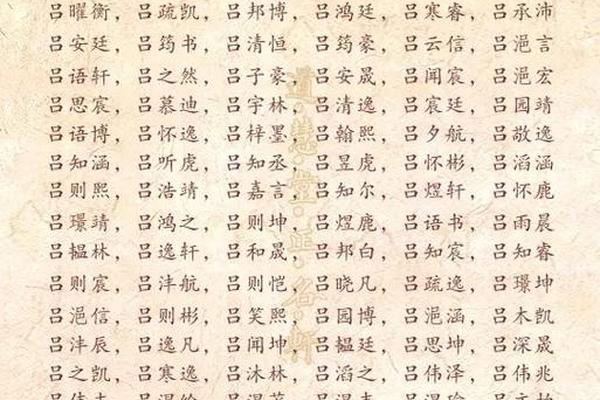 吕曜衡，吕疏凯，吕邦博，吕鸿廷，吕寒睿，吕承沛
吕安廷，吕筠书，吕清恒，吕筠豪，吕云信，吕浥言
吕语轩，吕之然，吕子豪，吕安晟，吕闻宸，吕浥宏
吕思宸，吕慕迪，吕宇林，吕清逸，吕宸廷，吕园靖
吕语博，吕怀逸，吕梓墨，吕翰熙，吕夕航，吕敬逸
吕知涵，吕听虎，吕知丞，吕昱虎，吕怀彬，吕滔涵
吕则熙，吕浩靖，吕嘉言，吕知尔，吕煜轩，吕怀鹿
吕璟靖，吕鸿之，吕则坤，吕煜鹿，吕语书，吕雨晨
吕韫林，吕逸轩，吕和晟，吕邦白，吕知宸，吕知睿
吕则宸，吕沣航，吕则恺，吕晓凡，吕疏逸，吕璟坤
吕浥信，吕则彬，吕笑熙，吕园博，吕浥涵，吕木凯
吕沣辰，吕逸凡，吕闻坤，吕韫廷，吕思坤，吕深晟
吕之凯，吕寒逸，吕沐林，吕滔之，吕伟泽，吕伟兆